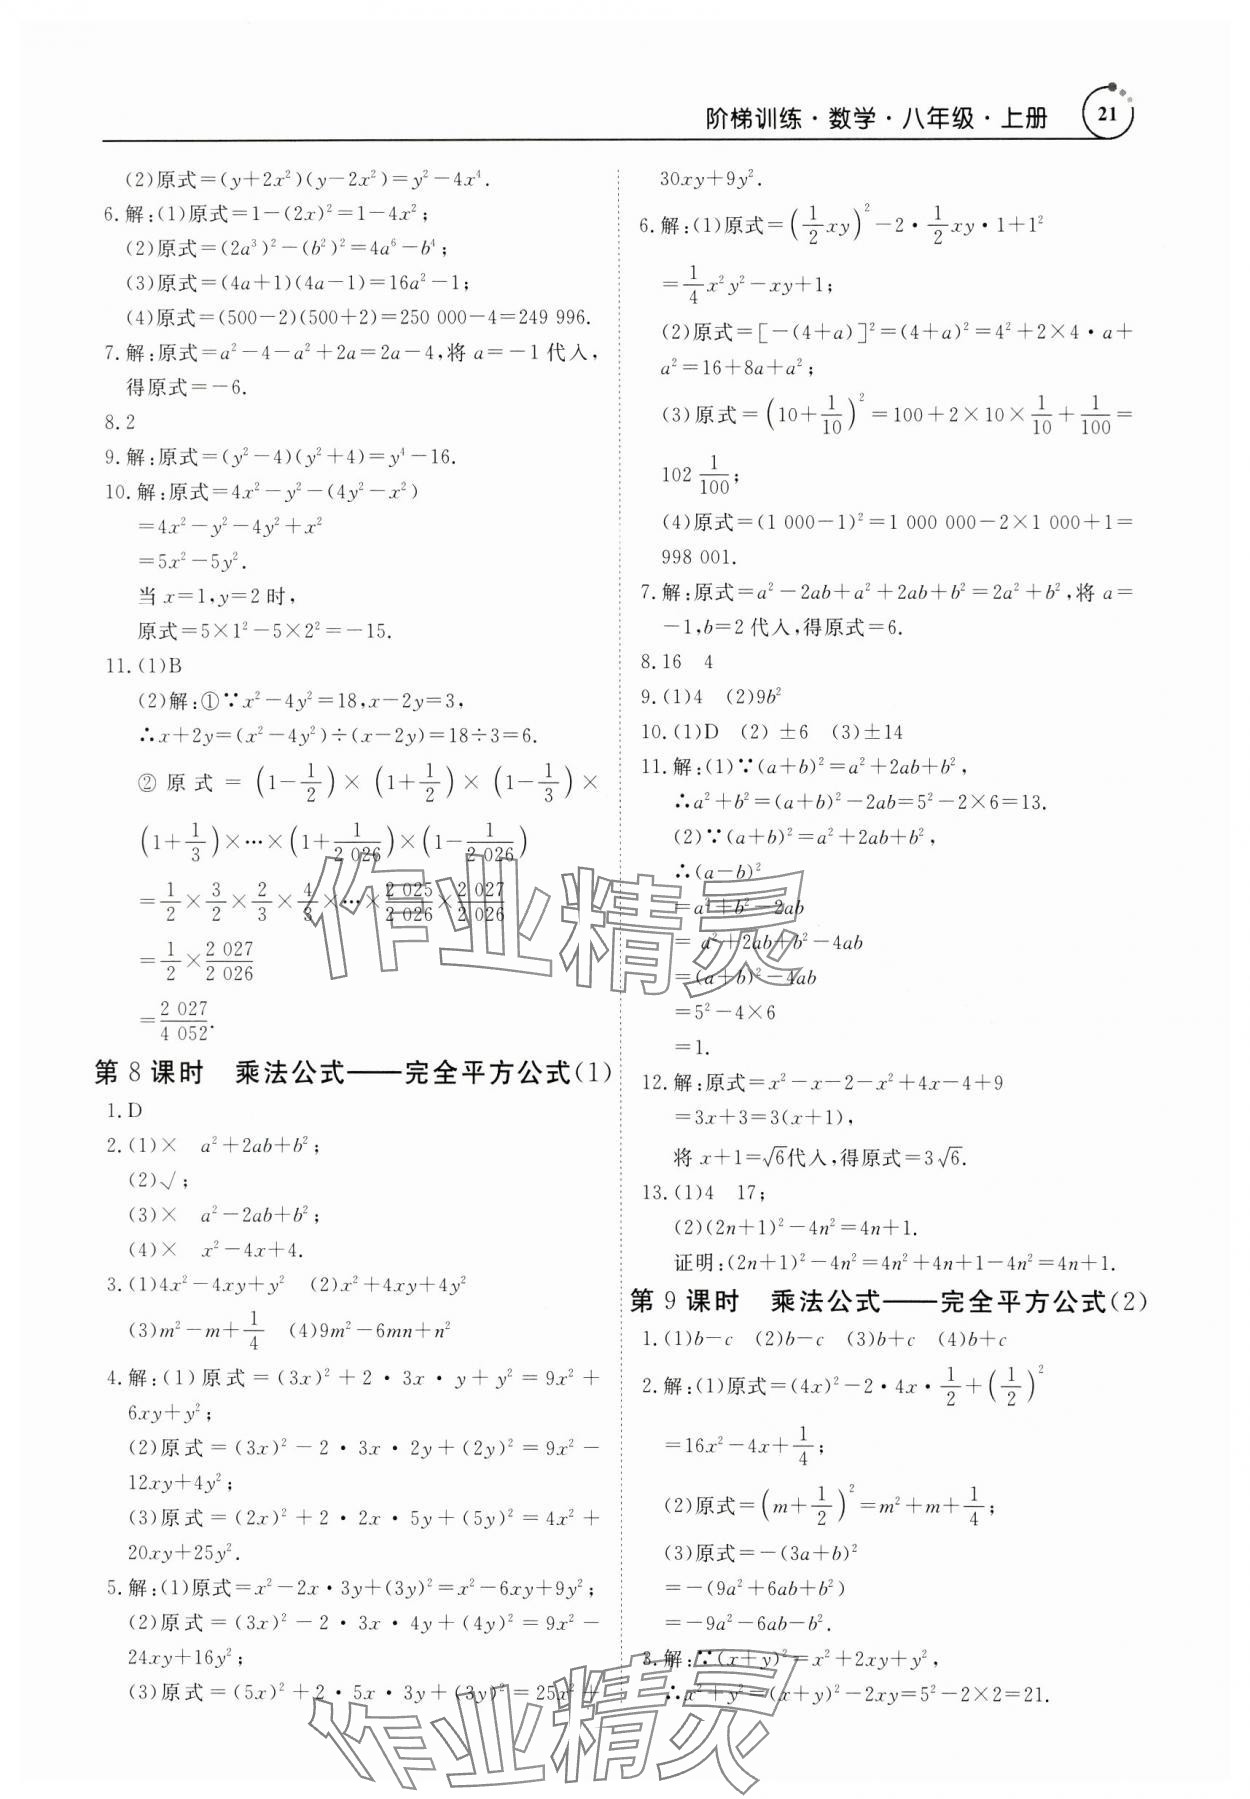 阶梯训练·数学·八年级·上册 21
(2)原式=(y+2x²)(y-2x²)=y²-4x⁴.
6.解:(1)原式=1-(2x)²=1-4x²;
(2)原式=(2a³)²-(b²)²=4a⁶-b⁴;
(3)原式=(4a+1)(4a-1)=16a²-1;
(4)原式=(500-2)(500+2)=250 000-4=249 996.
7.解:原式=a²-4-a²+2a=2a-4,将 a=-1 代入,
得原式=-6.
8.2
9.解:原式=(y²-4)(y²+4)=y⁴-16.
10.解:原式=4x²-y²-(4y²-x²)
=4x²-y²-4y²+x²
=5x²-5y².
当 x=1,y=2 时,
原式=5×1²-5×2²=-15.
11.(1)B
(2)解:①∵x²-4y²=18,x-2y=3,
∴x+2y=(x²-4y²)÷(x-2y)=18÷3=6.
②原式=(1-1/2)×(1+1/2)×(1-1/3)×
(1+1/3)×…×(1+1/2 026)×(1-1/2 026)
=1/2×3/2×2/3×4/3×…×2 025/2 026×2 027/2 026
=1/2×2 027/2 026
=2 027/4 052.
第 8 课时 乘法公式——完全平方公式(1)
1.D
2.(1)× a²+2ab+b²;
(2)√;
(3)× a²-2ab+b²;
(4)× x²-4x+4.
3.(1)4x²-4xy+y² (2)x²+4xy+4y²
(3)m²-m+1/4 (4)9m²-6mn+n²
4.解:(1)原式=(3x)²+2·3x·y+y²=9x²+
6xy+y²;
(2)原式=(3x)²-2·3x·2y+(2y)²=9x²-
12xy+4y²;
(3)原式=(2x)²+2·2x·5y+(5y)²=4x²+
20xy+25y².
5.解:(1)原式=x²-2x·3y+(3y)²=x²-6xy+9y²;
(2)原式=(3x)²-2·3x·4y+(4y)²=9x²-
24xy+16y²;
(3)原式=(5x)²+2·5x·3y+(3y)²=25x²+
30xy+9y².
6.解:(1)原式=(1/2xy)²-2·1/2xy·1+1²
=1/4x²y²-xy+1;
(2)原式=[-(4+a)]²=(4+a)²=4²+2×4·a+
a²=16+8a+a²;
(3)原式=(10+1/10)²=100+2×10×1/10+1/100=
102 1/100;
(4)原式=(1 000-1)²=1 000 000-2×1 000+1=
998 001.
7.解:原式=a²-2ab+a²+2ab+b²=2a²+b²,将 a=
-1,b=2 代入,得原式=6.
8.16 4
9.(1)4 (2)9b²
10.(1)D (2) ±6 (3)±14
11.解:(1)∵(a+b)²=a²+2ab+b²,
∴a²+b²=(a+b)²-2ab=5²-2×6=13.
(2)∵(a+b)²=a²+2ab+b²,
∴(a-b)²
=a²+b²-2ab
=a²+2ab+b²-4ab
=(a+b)²-4ab
=5²-4×6
=1.
12.解:原式=x²-x-2-x²+4x-4+9
=3x+3=3(x+1),
将 x+1=√6代入,得原式=3√6.
13.(1)4 17;
(2)(2n+1)²-4n²=4n+1.
证明:(2n+1)²-4n²=4n²+4n+1-4n²=4n+1.
第 9 课时 乘法公式——完全平方公式(2)
1.(1)b-c (2)b-c (3)b+c (4)b+c
2.解:(1)原式=(4x)²-2·4x·1/2+(1/2)²
=16x²-4x+1/4;
(2)原式=(m+1/2)²=m²+m+1/4;
(3)原式=-(3a+b)²
=-(9a²+6ab+b²)
=-9a²-6ab-b².
3.解:∵(x+y)²=x²+2xy+y²,
∴x²+y²=(x+y)²-2xy=5²-2×2=21.
作业精灵
作业精灵